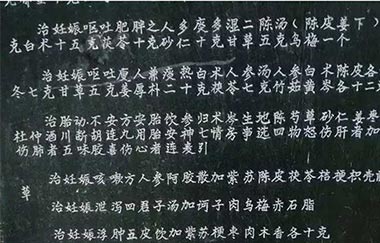 治妊娠呕吐肥胖之人多痰多湿二陈汤(陈皮姜下)
克白术十五克茯苓十克砂仁十克甘草五克乌梅一个
治妊娠呕吐瘦人兼痰热白术人参汤人参白术陈皮各
冬七克甘草五克姜厚朴二十克茯苓七克竹茹黄岑各十二
治胎动不安方安胎饮参归术岑生地陈芍草砂仁姜枣
杜仲酒川断胡连九用胎安神七情房事迄四物怒伤肝者加
伤肺者五味胶喜伤心者连麦引
草
治妊娠咳嗽方人参阿胶散加紫苏陈皮茯苓桔梗枳壳前
治妊娠泄泻四君子汤加诃子肉乌梅赤石脂
治妊娠浮肿五皮饮加紫苏梗枣肉木香各十克